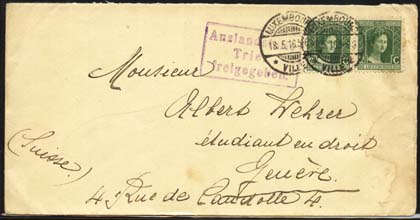 LUXEMBOURG
18.5.16
VILLE
LUXEMBOURG
VILLE
Ausland
Trier
freigegeben.
Monsieur
Albert Wehrer
étudiant en droit
Genève
(Suisse)
4 Rue de Candolle 4.